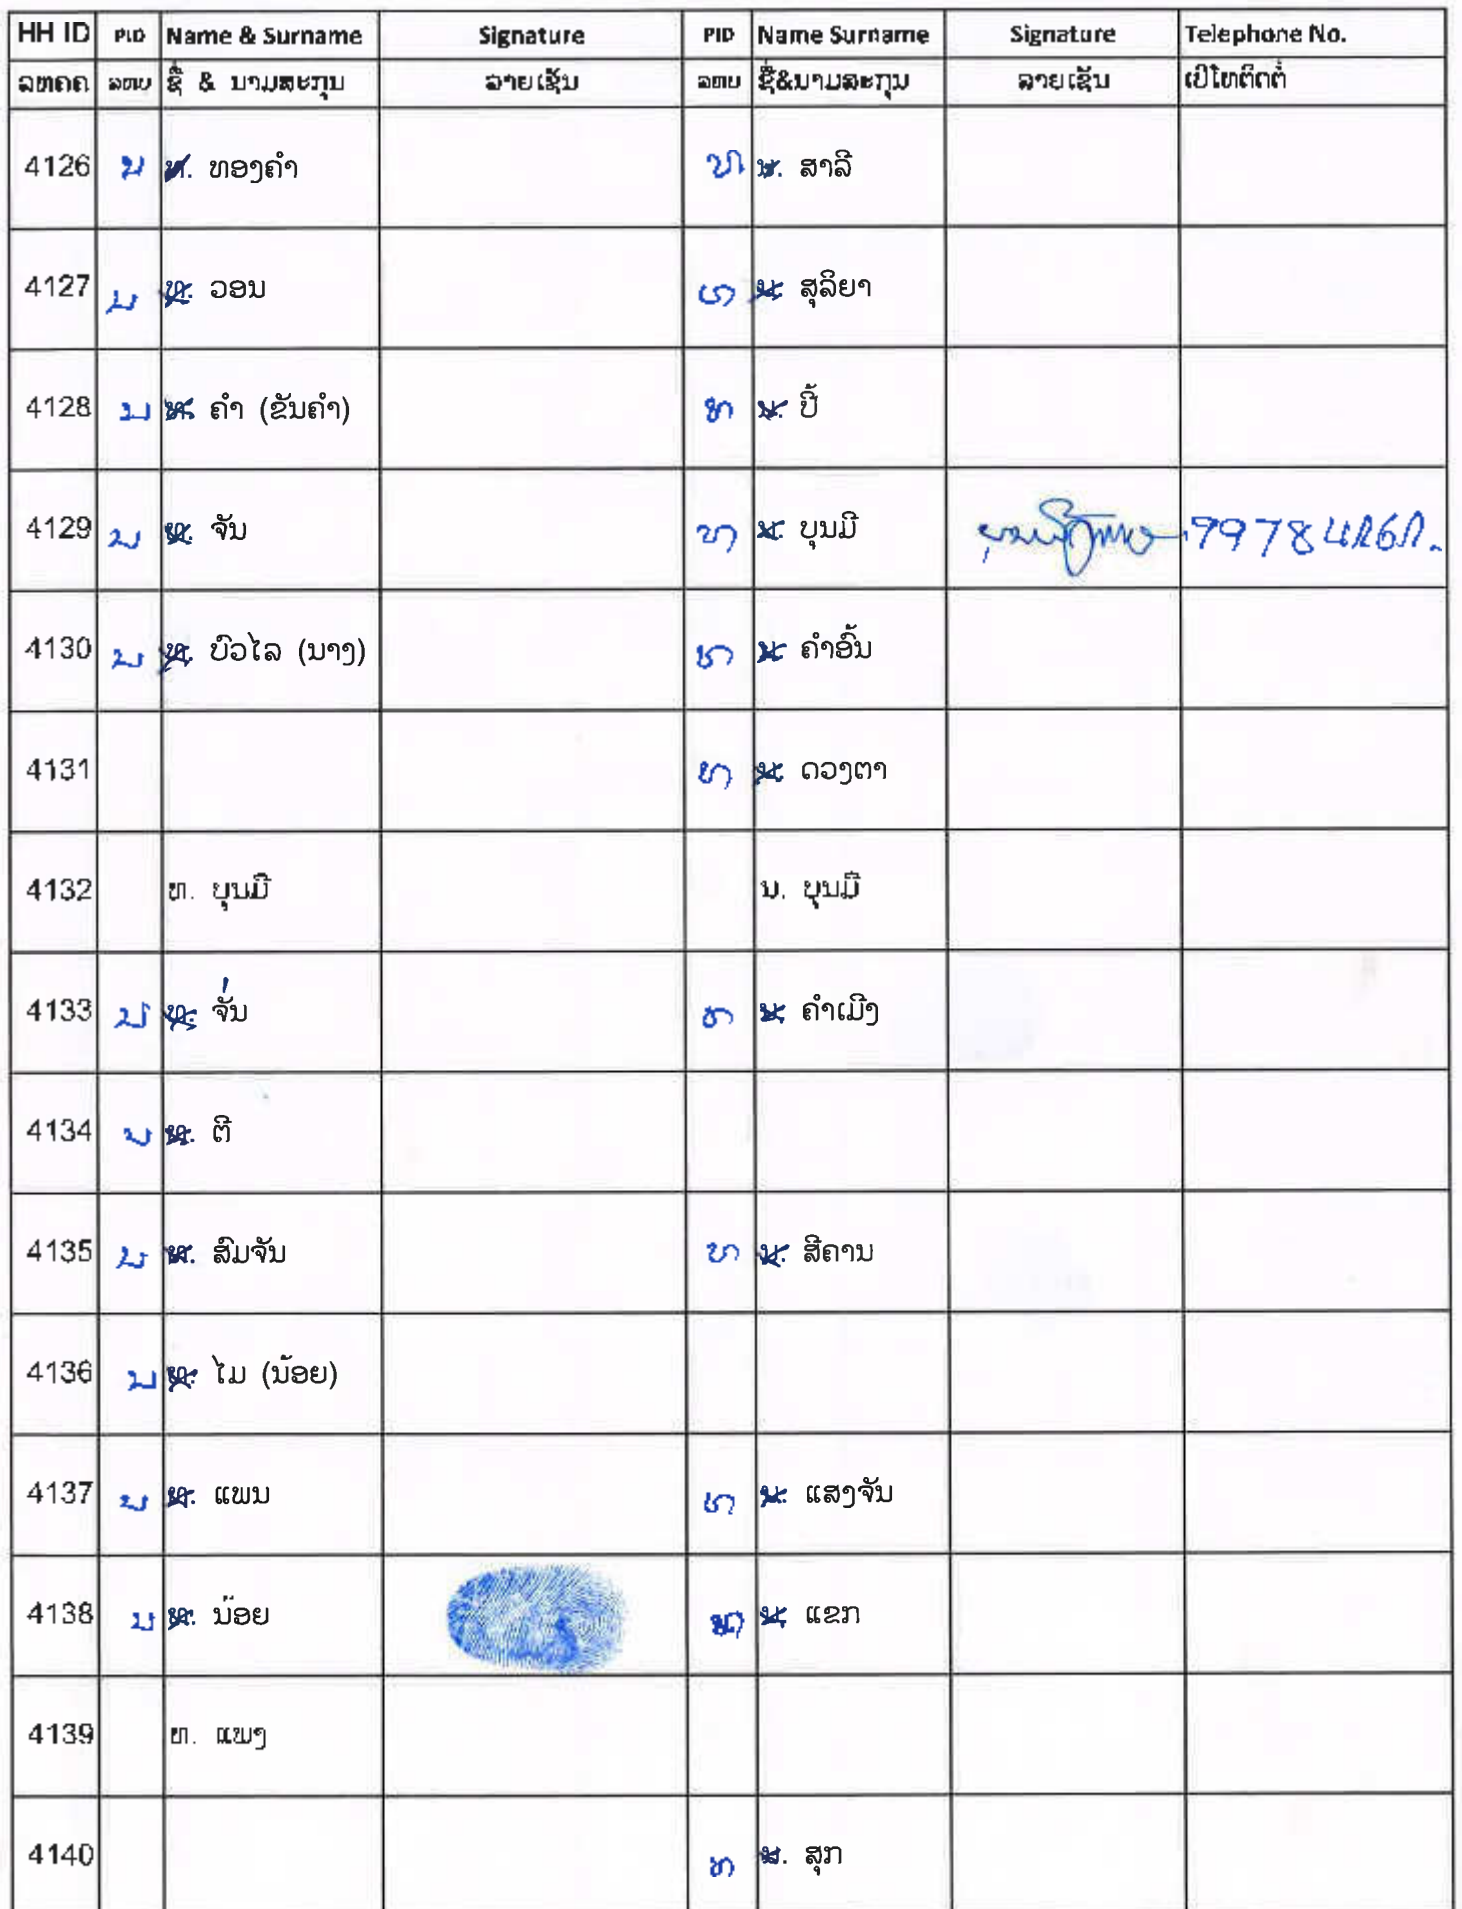 HH ID PID Name & Surname Signature PID Name Surname Signature Telephone No.
ລຫຄຄ ລຫບ ຊື່ & ນາມສະກຸນ ລາຍເຊັນ ລຫບ ຊື່&ນາມສະກຸນ ລາຍເຊັນ ເບີໂທຕິດຕໍ່
4126 ນ ທ. ທອງຄຳ ທ ນ. ສາລີ
4127 ນ ທ. ວອນ ທ ນ. ສຸລິຍາ
4128 ນ ທ. ຄຳ (ຂັນຄຳ) ທ ນ. ປີ້
4129 ນ ທ. ຈັນ ທ ນ. ບຸນມີ
4130 ນ ທ. ບົວໄລ (ນາງ) ທ ນ. ຄຳອົ້ນ
4131 ທ ນ. ດວງຕາ
4132 ທ. ບຸນມີ ນ. ບຸນມີ
4133 ນ ທ. ຈັ່ນ ທ ນ. ຄຳເມີງ
4134 ນ ທ. ຕີ
4135 ນ ທ. ສົມຈັນ ທ ນ. ສີດານ
4136 ນ ທ. ໄມ (ນ້ອຍ)
4137 ນ ທ. ແພນ ທ ນ. ແສງຈັນ
4138 ນ ທ. ນ້ອຍ ທ ນ. ແຂກ
4139 ທ. ແພງ
4140 ທ ນ. ສຸກ